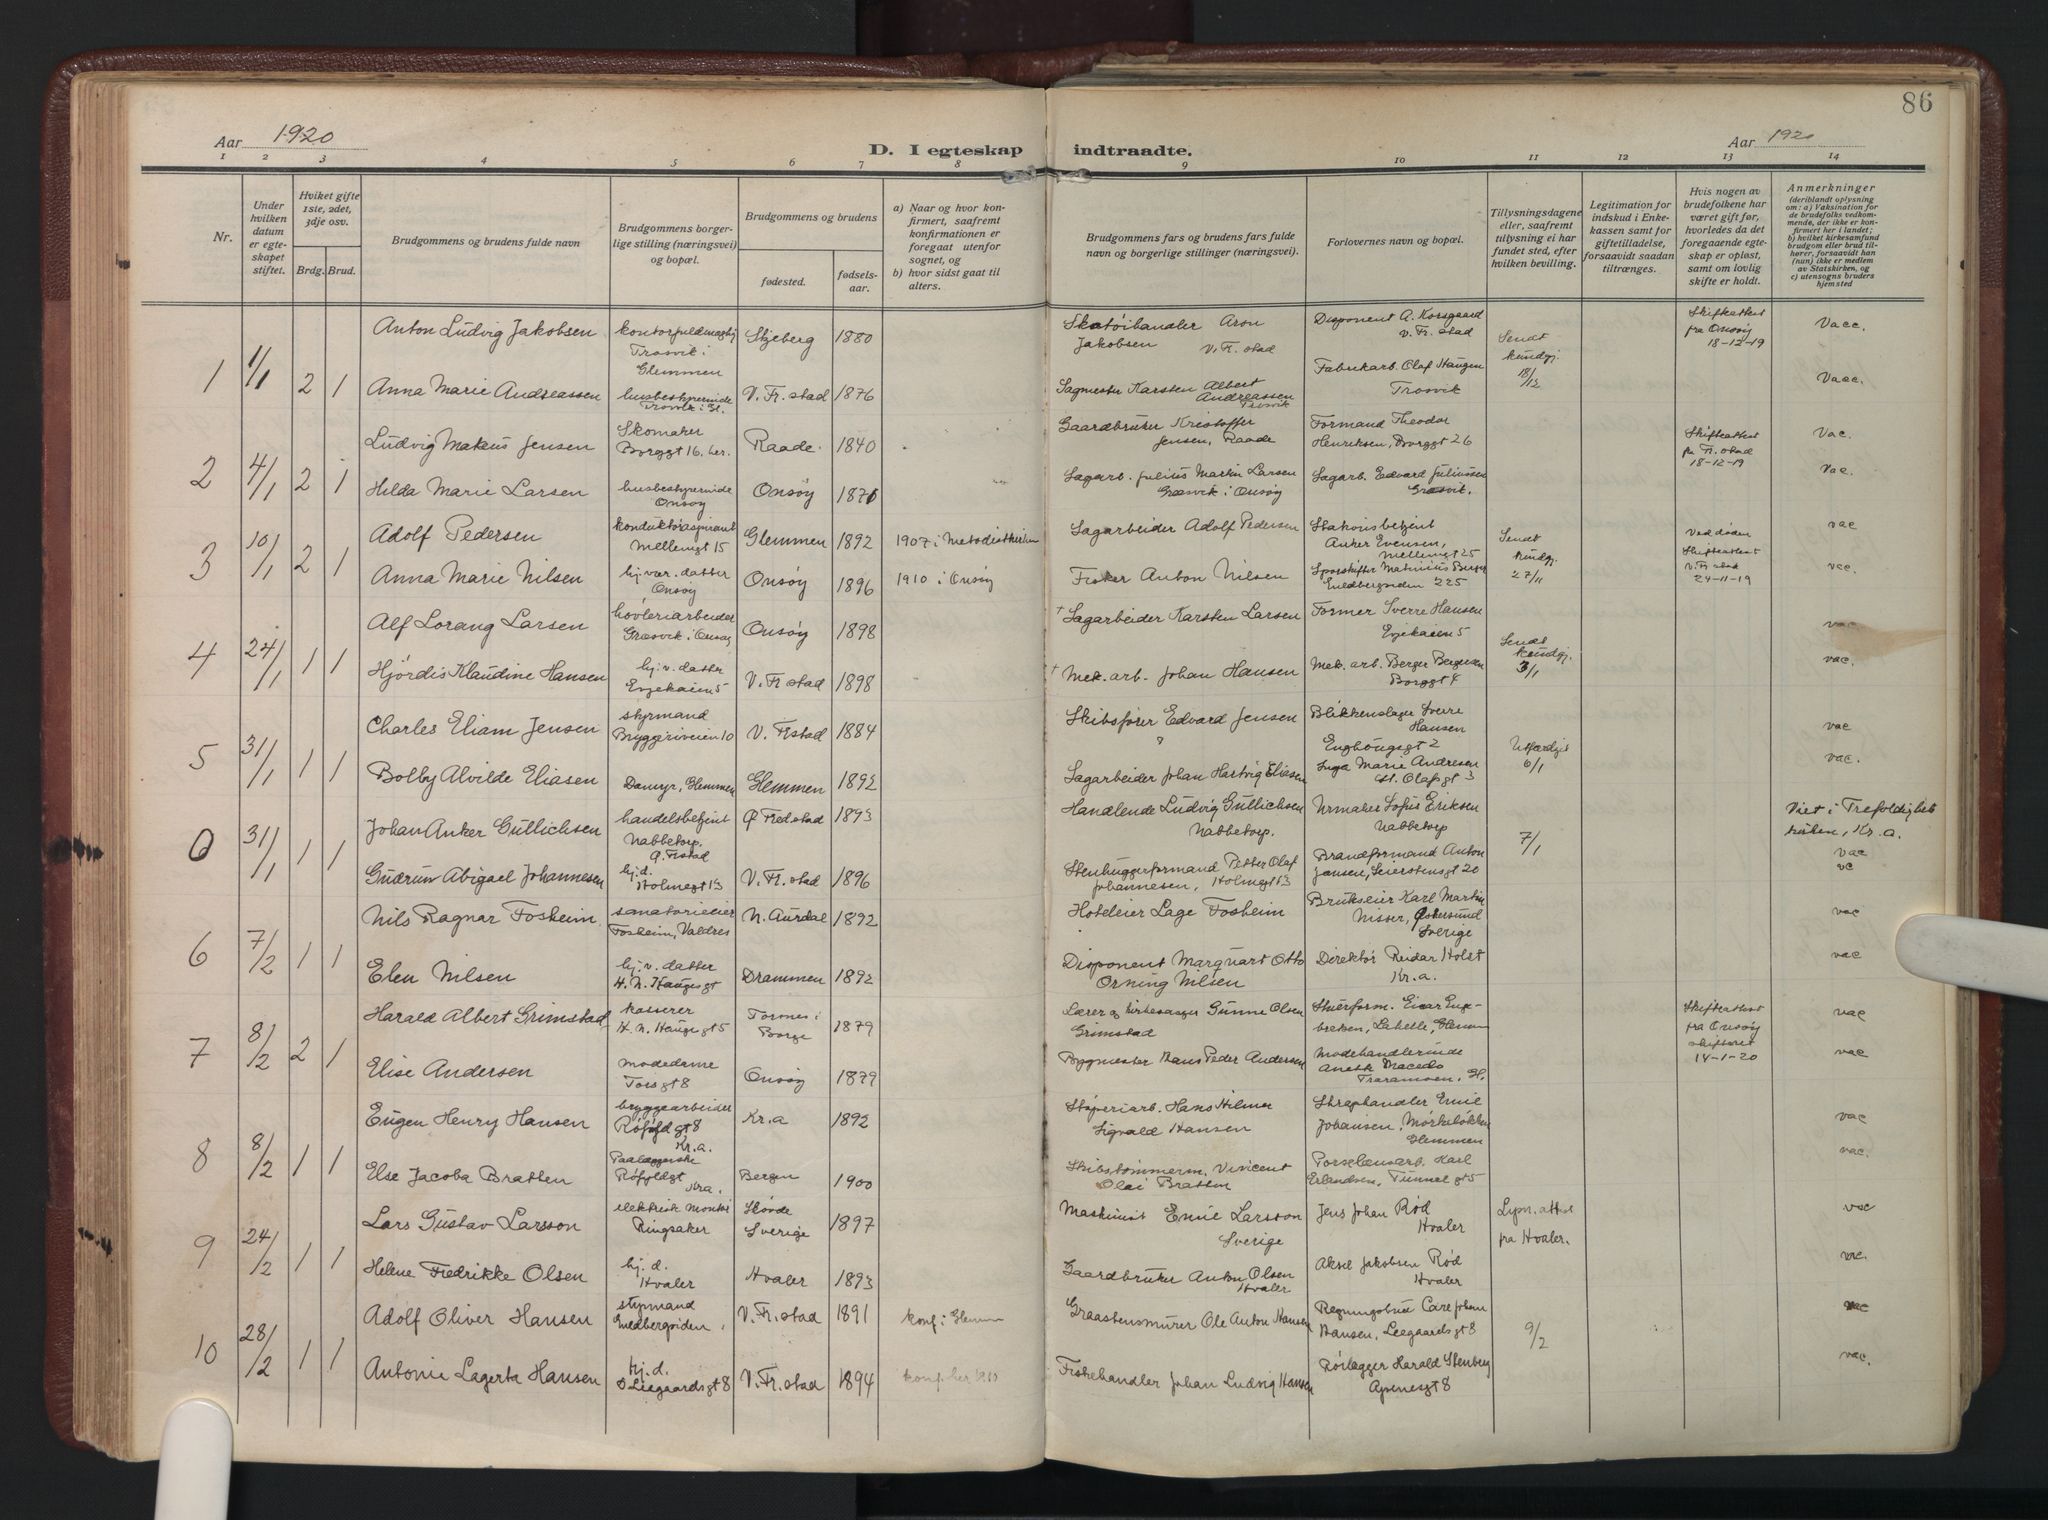 86
Aar 1920
D. I egteskap indtraadte.
Aar 1920
1 2 3 4 5 6 7 8 9 10 11 12 13 14
Nr.
Under hvilken datum er egteskapet stiftet.
Hvilket gifte 1ste, 2det, 3dje osv.
Brdg. Brud.
Brudgommens og brudens fulde navn
Brudgommens borgerlige stilling (næringsvei) og bopæl.
Brudgommens og brudens
fødested.
fødselsaar.
a) Naar og hvor konfirmert, saafremt konfirmationen er foregaat utenfor sognet, og
b) hvor sidst gaat til alters.
Brudgommens fars og brudens fars fulde navn og borgerlige stillinger (næringsvei).
Forlovernes navn og bopæl.
Tillysningsdagene eller, saafremt tillysning ei har fundet sted, efter hvilken bevilling.
Legitimation for indskud i Enkekassen samt for giftetilladelse, forsaavidt saadan tiltrænges.
Hvis nogen av brudefolkene har været gift før, hvorledes da det foregaaende egteskap er opløst, samt om lovlig skifte er holdt.
Anmerkninger (deriblandt oplysning om: a) Vaksination for de brudefolks vedkommende, der ikke er konfirmert her i landet; b) hvilket kirkesamfund brudgom eller brud tilhører, forsaavidt han (hun) ikke er medlem av Statskirken, og c) utensogns bruders hjemsted
1 1/1 2 1
Anton Ludvig Jakobsen kontorfuldmægtig Trosvik i Glemmen Skjeberg 1880 Skotøihandler Aron Jakobsen V. Fr. stad Disponent A. Korsgaard V. Fr. stad Sendt kundgj. 18/12 Skifteattest fra Onsøy 18-12-19 Vacc.
Anna Marie Andreassen husbestyrerinde Trosvik i Gl. V. Fr. stad 1876 Sagmester Karsten Albert Andreassen Trosvik Fabrikarb. Olaf Haugen Trosvik Vacc.
2 4/1 2 1
Ludvig Makus Jensen Skomaker Borggt 16, her. Raade 1840 Gaardbruker Kristoffer Jensen, Raade Formand Theodor Henriksen, Borggt 26 Skifteattest fra Fr. stad 18-12-19 Vac.
Hilda Marie Larsen husbestyrerinde Onsøy Onsøy 1871 Sagarb. Julius Martin Larsen Græsvik i Onsøy Sagarb. Edvard Juliussen Græsvik. Vac.
3 10/1 2 1
Adolf Pedersen konduktøraspirant Mellemgt 15 Glemmen 1892 1907 i Metodistkirken Sagarbeider Adolf Pedersen Stationsbetjent Anker Evensen, Mellemgt 25 Sendt kundgj. 27/11 Ved døden Skifteattest V. Fr stad 24-11-19 vac
Anna Marie Nilsen hj. vær. datter Onsøy Onsøy 1896 1910 i Onsøy Fisker Anton Nilsen Sporskifter Mathinius Berger 225 vac.
4 24/1 1 1
Alf Lorang Larsen høvleriarbeider Græsvik i Onsøy Onsøy 1898 + Sagarbeider Karsten Larsen Former Sverre Hansen Evjekaien 5 Sendt kundgj. 3/1 vac
Hjørdis Klaudine Hansen hj. v. datter Evjekaien 5 V. Fr stad 1898 + Mek. arb. Johan Hansen Mek. arb. Berger Bergersen Borggt 4 vac.
5 31/1 1 1
Charles Eliam Jensen styrmand Bryggeriveien 10 V. Frstad 1884 Skibsfører Edvard Jensen Blikkenslager Sverre Hansen Enghaugsgt 2 Utfærdiget 6/1 vac
Bolby Alvilde Eliasen Damyr, Glemmen Glemmen 1892 Sagarbeider Johan Hartvig Eliasen Inga Marie Andresen St. Olafsgt 3 vac.
0 31/1 1 1
Johan Anker Gullichsen handelsbetjent Nabbetorp. Ø. Frstad Ø Fredstad 1893 Handlende Ludvig Gullichsen Nabbetorp. Urmaker Sofus Eriksen Nabbetorp 7/1 Viet i Trefoldighetskirken, Kr. a. vac
Gudrun Abigael Johannesen hj. d. Holmegt 13 V. Fr. stad 1896 Stenhuggerformand Petter Olaf Johannesen, Holmegt 13 Brandformand Anton Jansen, Leierstensgt 20 vc
6 7/2 1 1
Nils Ragnar Fosheim sanatorieeier Fosheim, Valdres N. Aurdal 1892 Hoteleier Lage Fosheim Brukseier Karl Martin Nisser, Askersund Sverige vac
Elen Nilsen hj. v. datter H. N. Haugesgt Drammen 1892 Disponent Marquart Otto Orning Nilsen Direktør Reidar Holst Kr. a. vac
7 8/2 2 1
Harald Albert Grimstad kasserer H. N. Hauge gt 5 Torsnes i Borge 1879 Lærer og kirkesanger Gunne Olsen Grimstad Skuerform. Einar Engebretsen, Labella, Glemmen Skifteattest fra Onsøy skifteret 14-1-20 vac
Elise Andersen modedame Torsgt 8 Onsøy 1879 Bygmester Hans Peder Andersen Modehandlerinde Anetth Macedo Traramoen, Gl. vac
8 8/2 1 1
Eugen Henry Hansen bryggearbeider gt 8 Kr. a. Kr. a 1892 Støperiarb. Hans Hilmer Sigvald Hansen Skraphandler Emil Johansen, Mørkeløkken Glemmen vac
Else Jacoba Bratten Kra. Bergen 1900 Skibstømmerm. Vinicent Olai Bratten Porselænsarb. Karl Erlandsen, Tunnelgt 5 vac.
9 24/2 1 1
Lars Gustav Larsson elektrisk montør Ringsaker Skövde Sverige 1897 Maskinist Emil Larsson Sverige Jens Johan Rød Hvaler Lysn. attest fra Hvaler. vac
Helene Fredrikke Olsen hj. d. Hvaler Hvaler 1893 Gaardbruker Anton Olsen Hvaler Aksel Jakobsen Rød Hvaler vac.
10 28/2 1 1
Adolf Oliver Hansen styrmand V. Fr. stad 1891 konf. i Glemmen Graastensmurer Ole Anton Hansen Johan Hansen, Leegaardsgt 8 9/2 vac
Antonie Lagerta Hansen hj. d. Leegaardsgt 8 V. Fr. stad 1894 konf. her 1910 Fiskehandler Johan Ludvig Hansen Rørlægger Harald Stenberg Apenesgt 8 vac.